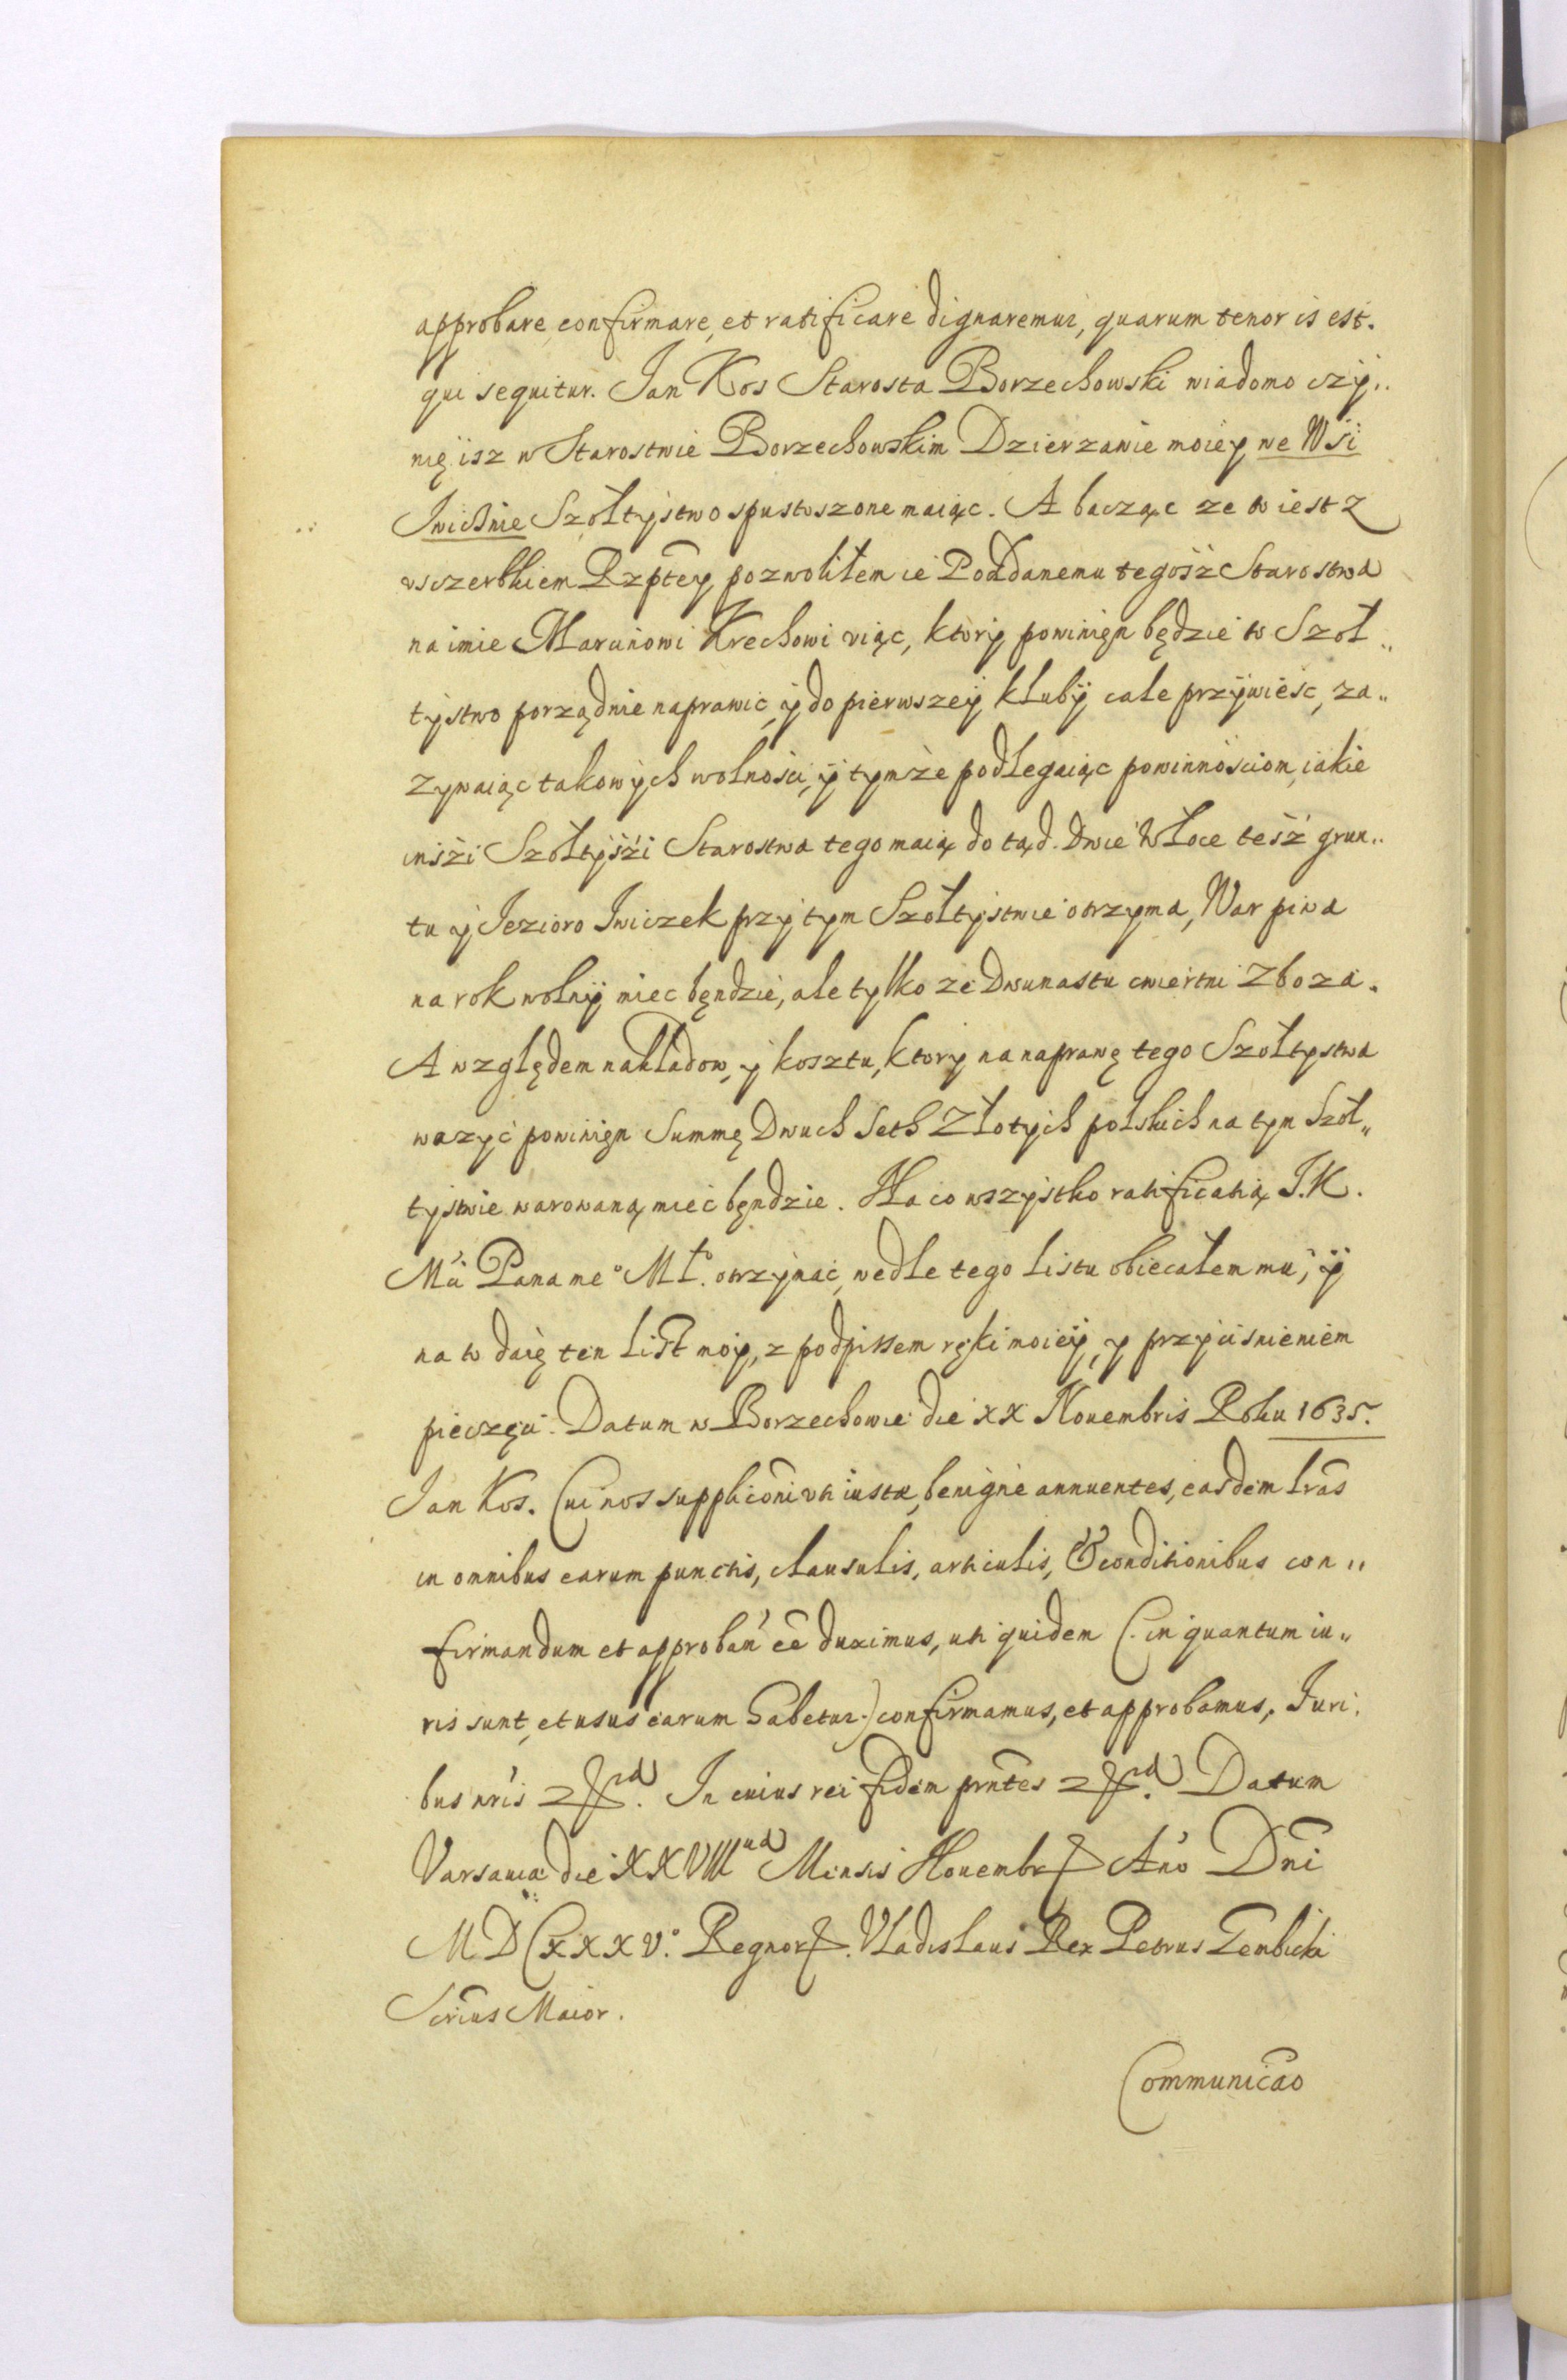 approbare, confirmare, et ratificare dignaremur, quarum tenor is est.
qui sequitur. Jan Kos Starosta Borzechowski wiadomo czÿ..
nię isz w Starostwie Borzechowskim Dzierzawie moiey we Wsi
Iwicznie Szołtÿstwo spustoszone maiąc. A bacząc ze to iest z
vszczerbkiem Rzptey pozwoliłem ie Poddanemu tegosz Starostwa
na imie Marcinowi Krechowi viąc, ktorÿ powinięn będzie to Szoł..
tÿstwo porządnie naprawic, ÿ do pierwszeÿ klubÿ cale przÿwiesc, za..
zywaiąc takowÿch wolnosci, ÿ tymze podlegaiąc powinnosciom, iakie
inszi Szołtÿszi Starostwa tego maią do tąd. Dwie Włoce tesz grun..
tu ÿ Iezioro Iwiczek przÿ tym Szołtÿstwie otrzyma, War piwa
na rok wolnÿ miec bęndzie, ale tylko ze Dwunastu cwiertni Zboza.
A względem nakładow, ÿ kosztu, ktorÿ na naprawę tego Szołtystwa
wazÿc powinięn Summę Dwuch Seth Złotÿch polskich na tym Szoł..
tÿstwie warowaną miec bęndzie. Na co wszÿstko ratificatią I.K.
Mci Pana meº Młº. otrzÿmac, wedle tego listu obiecałem mu, ÿ
na to daię ten list moÿ, z podpissem ręki moieÿ, ÿ przÿcisnieniem
pieczęci. Datum w Borzechowie die XX Nouembris Roku 1635.
Jan Kos. Cui nos suppliconi vti iustæ, benigne annuentes, easdem lras
in omnibus earum punctis, clausulis, articulis, & conditionibus con..
firmandum et approban ee duximus, uti quidem (. in quantum iu..
ris sunt, et usus earum habetur.) confirmamus, et approbamus, Iuri.
bus nris In cuius rei fidem prntes Datum
Varsauiæ die XXVIII Mensis Nouembr Ano Dni
MDCXXXVº. Regnor. Vladislaus Rex Petrus Gembicki
Scrius Maior.
Communicao